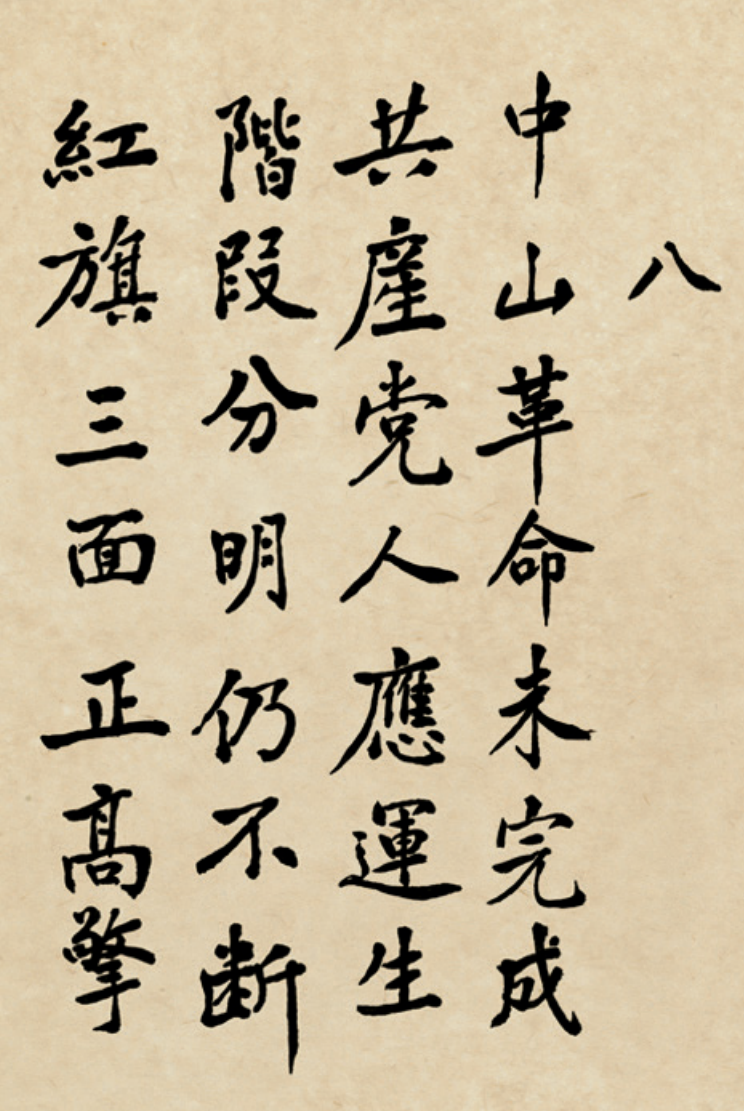 八
中山革命未完成
共產党人應運生
階段分明仍不断
紅旗三面正高擎